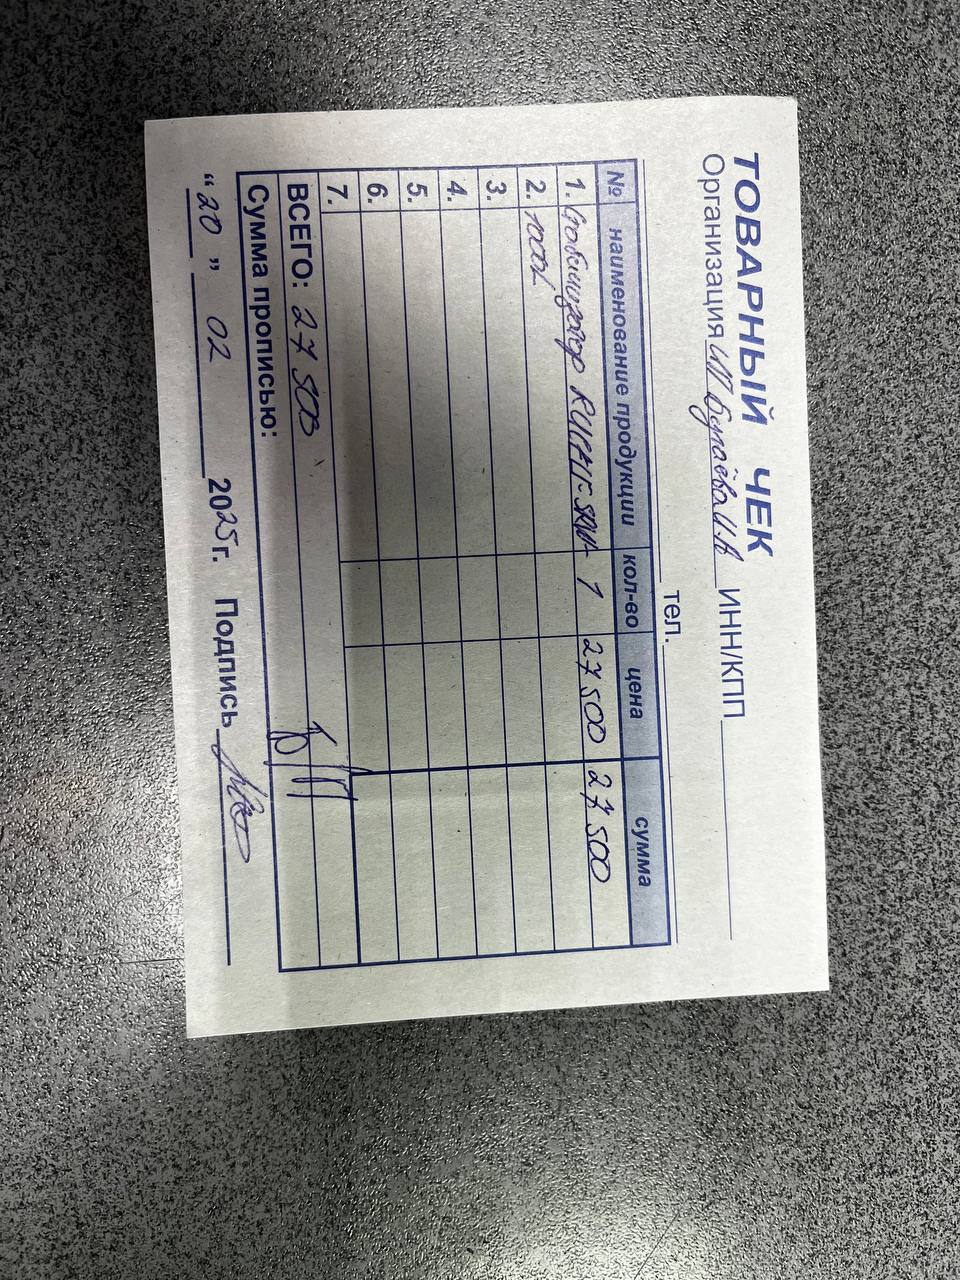 ТОВАРНЫЙ ЧЕК
Организация ИП ИНН/КПП
тел.
№ наименование продукции кол-во цена сумма
1. Стабилизатор RUCELF 1 27500 27500
2.
3.
4.
5.
6.
7.
ВСЕГО: 27 500
Сумма прописью:
“20” 02 2025 г. Подпись